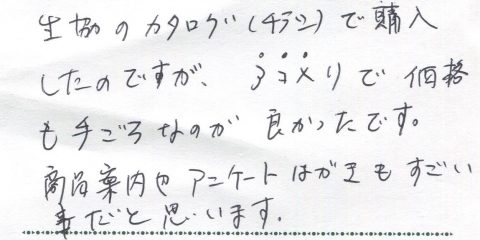 生協のカタログ(チラシ)で購入
したのですが、で価格
も手ごろなのが良かったです。
商品案内やアンケートはがきもすごい
事だと思います.